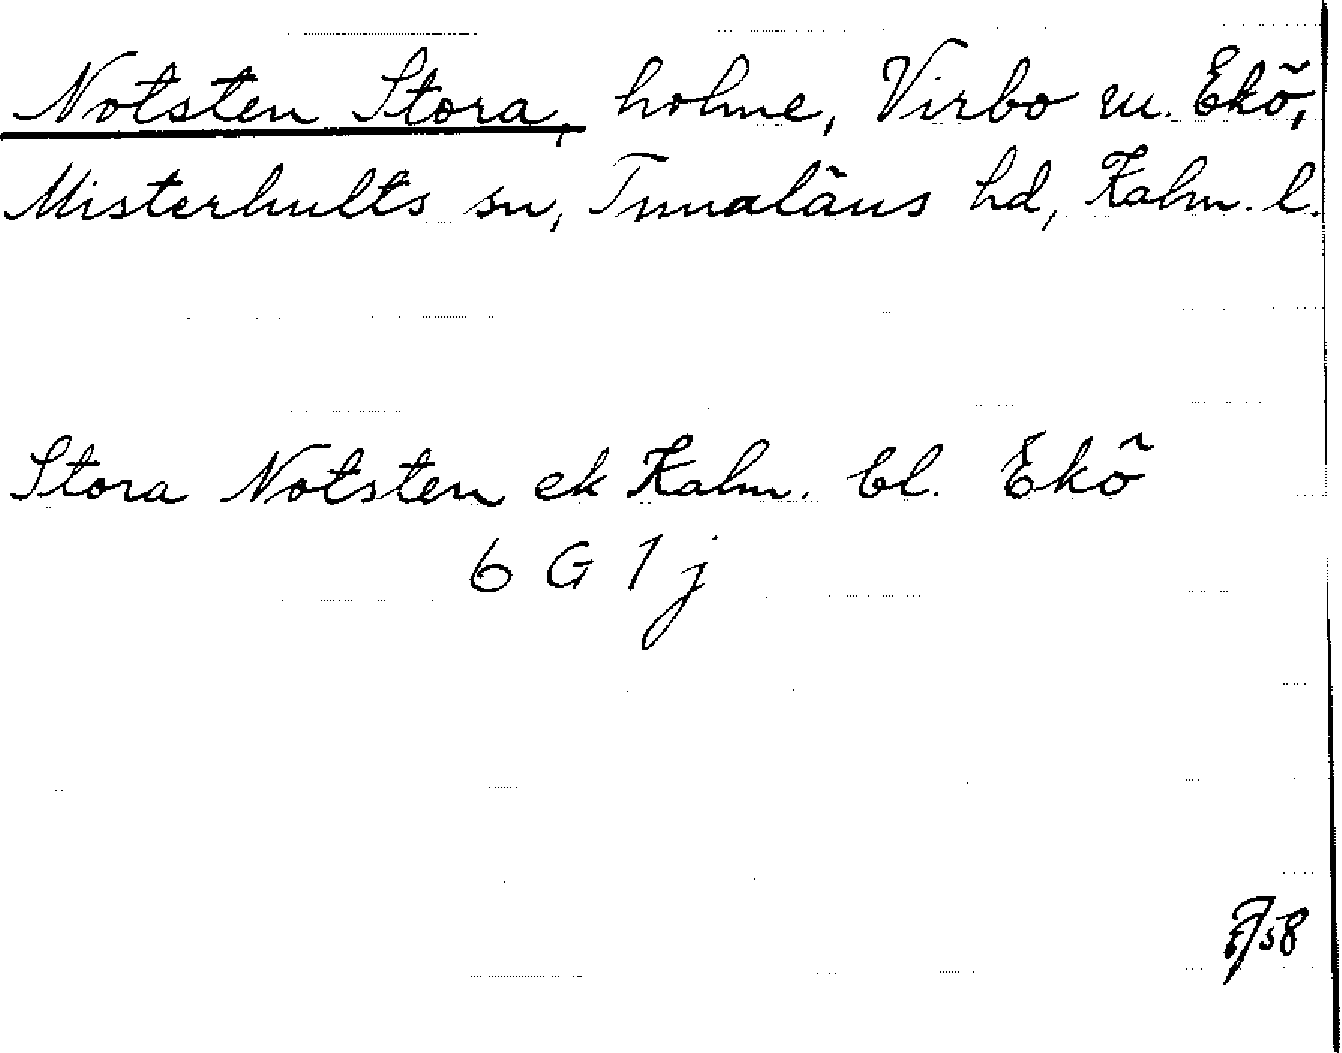 Notsten Stora, holme, Virbo m. Ekö,
Misterhults sn, Tunaläns hd, Kalm. l.
Stora Notsten ek Kalm. bl. Ekö
6 G 1 j
58